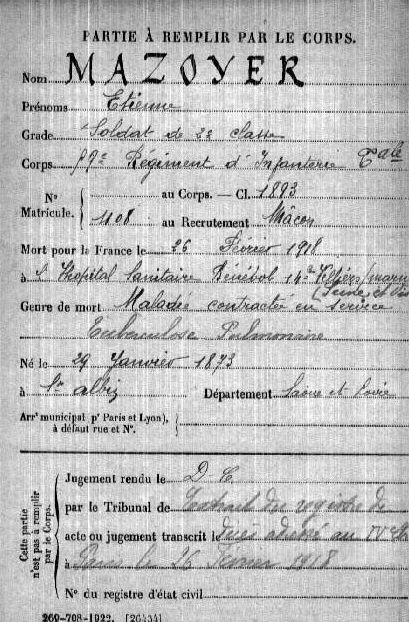 PARTIE À REMPLIR PAR LE CORPS.
Nom MAZOYER
Prénoms Etienne
Grade Soldat de 2e classe
Corps Régiment d'Infanterie Tale
Nº Matricule. 1108 au Corps. — Cl. 1893
au Recrutement Mâcon
Mort pour la France le 26 Février 1918
à l'Hopital Sanitaire Bénévol Villiers/marne
(Seine et Oise
Genre de mort Maladie contractée en service
Tuberculose Pulmonaire
Né le 29 Janvier 1873
à St albin Département Saone et Loire
Arrt municipal (pr Paris et Lyon),
à défaut rue et Nº.
Cette partie n'est pas à remplir par le Corps.
Jugement rendu le D C
par le Tribunal de Extrait des registre de
acte ou jugement transcrit le décès adressé au
à Paris le 26 Février 1918
Nº du registre d'état civil
260-708-1922. [26434]